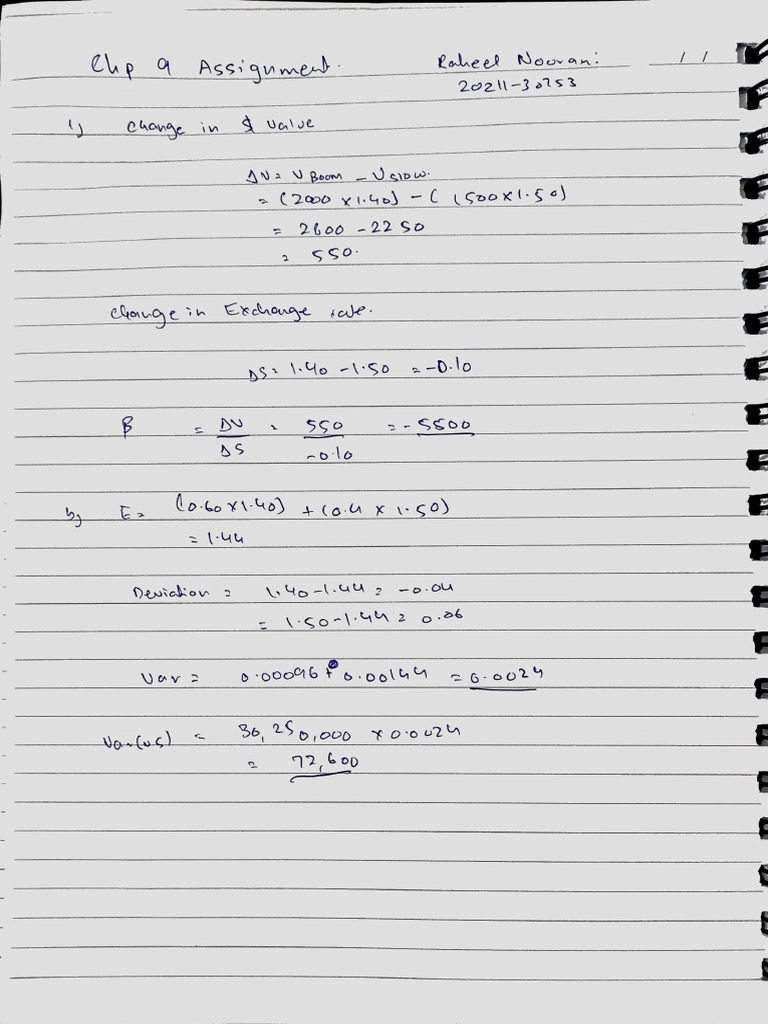 Chp 9 Assignment. Raheel Noorani / /
20211-30753
1) Change in $ value
ΔV = V Boom - V slow.
= (2000 x 1.40) - (1500 x 1.50)
= 2800 - 2250
= 550.
Change in Exchange rate.
ΔS = 1.40 - 1.50 = -0.10
β = ΔV = 550 = - 5500
ΔS -0.10
b) E = (0.60 x 1.40) + (0.4 x 1.50)
= 1.44
Deviation = 1.40 - 1.44 = -0.04
= 1.50 - 1.44 = 0.06
Var = 0.00096 + 0.00144 = 0.0024
Var(us) = 30,250,000 x 0.0024
= 72,600